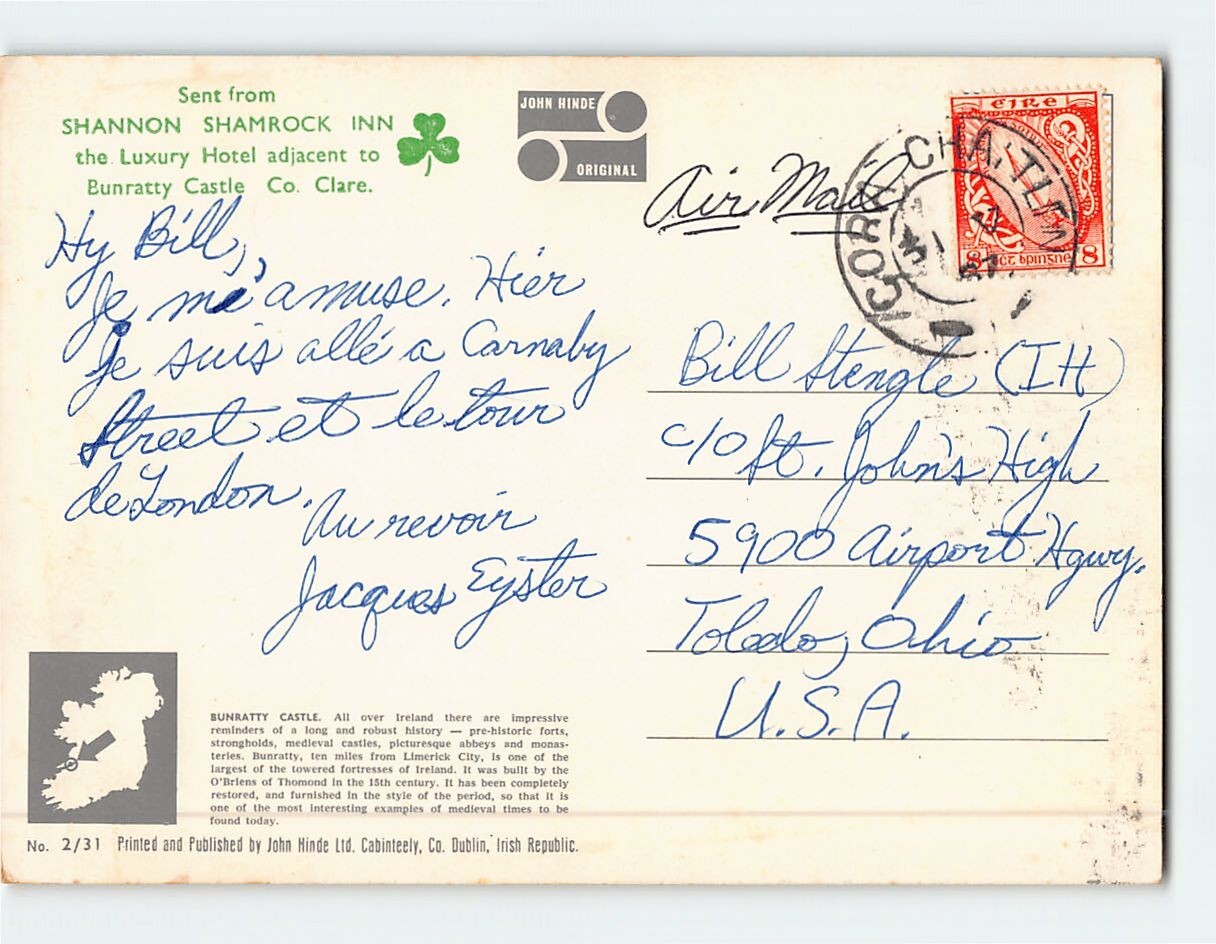 Sent from
SHANNON SHAMROCK INN
the Luxury Hotel adjacent to
Bunratty Castle Co. Clare.
JOHN HINDE
ORIGINAL
Air Mail
EIRE
8 8
67
Hy Bill,
Je m'amuse. Hier
Je suis allé a Carnaby
Street et le tour
de London.
Au revoir
Jacques Eyster
Bill Stengle (IH)
c/o St. John's High
5900 Airport Hgwy.
Toledo, Ohio
U.S.A.
BUNRATTY CASTLE. All over Ireland there are impressive
reminders of a long and robust history — pre-historic forts,
strongholds, medieval castles, picturesque abbeys and monas-
teries. Bunratty, ten miles from Limerick City, is one of the
largest of the towered fortresses of Ireland. It was built by the
O'Briens of Thomond in the 15th century. It has been completely
restored, and furnished in the style of the period, so that it is
one of the most interesting examples of medieval times to be
found today.
No. 2/31 Printed and Published by John Hinde Ltd. Cabinteely, Co. Dublin, Irish Republic.